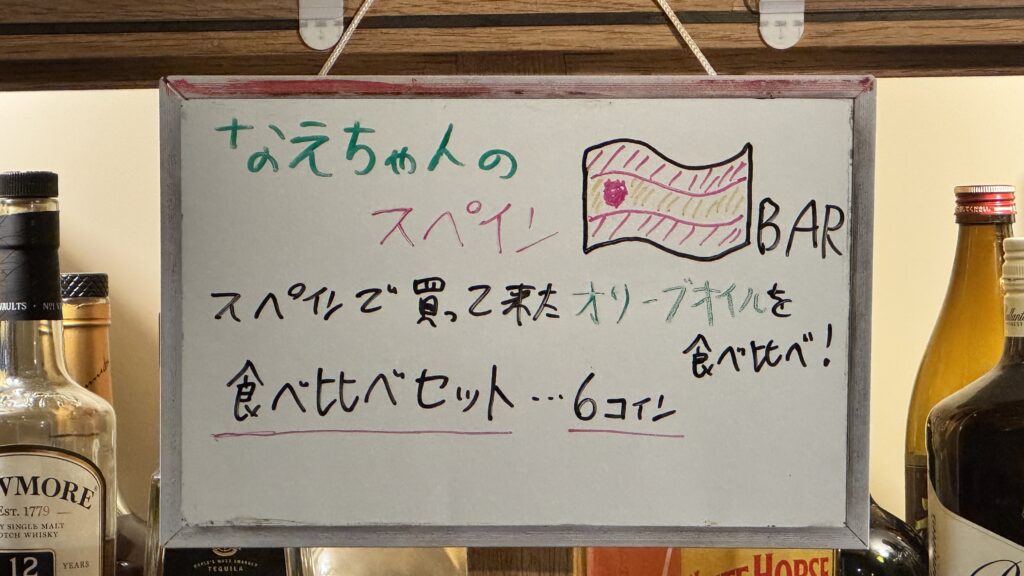 なえちゃんの
スペイン
BAR
スペインで買って来たオリーブオイルを
食べ比べ!
食べ比べセット…6コイン
VAULTS · No.1
WMORE
EST. 1779
SINGLE MALT
SCOTCH WHISKY
12 YEARS
WORLD'S MOST AWARDED
TEQUILA
HORSE
ください。